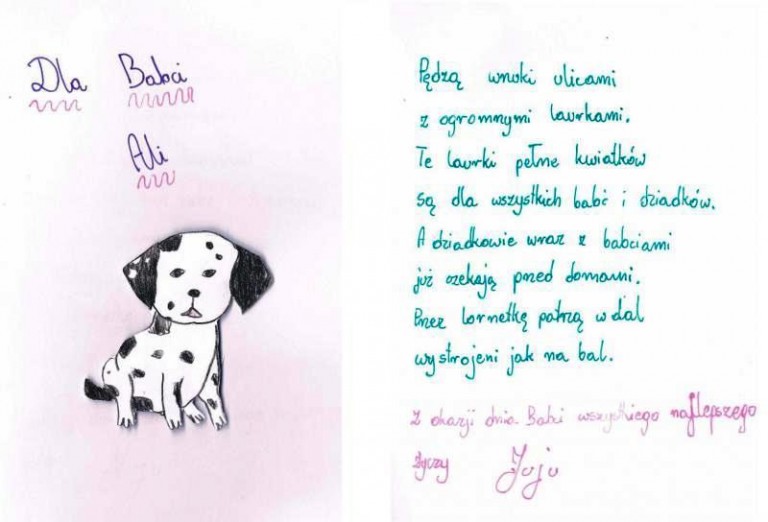 Dla Babci
Ali
Pędzą wnuki ulicami
z ogromnymi laurkami.
Te laurki pełne kwiatków
są dla wszystkich babć i dziadków.
A dziadkowie wraz z babciami
już czekają przed domami.
Przez lornetkę patrzą w dal
wystrojeni jak na bal.
Z okazji dnia Babci wszystkiego najlepszego
życzy Juju